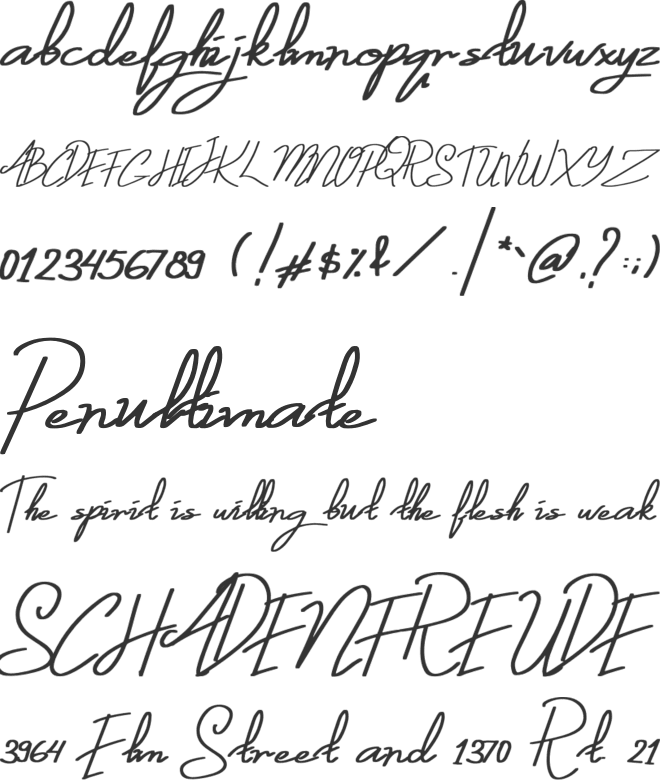 abcdefghijklmnopqrstuvwxyz
ABCDEFGHIJKLMNOPQRSTUVWXYZ
0123456789 (!#$%&/.|*`@,?:;)
Penultimate
The spirit is willing but the flesh is weak
SCHADENFREUDE
3964 Elm Street and 1370 Rt. 21